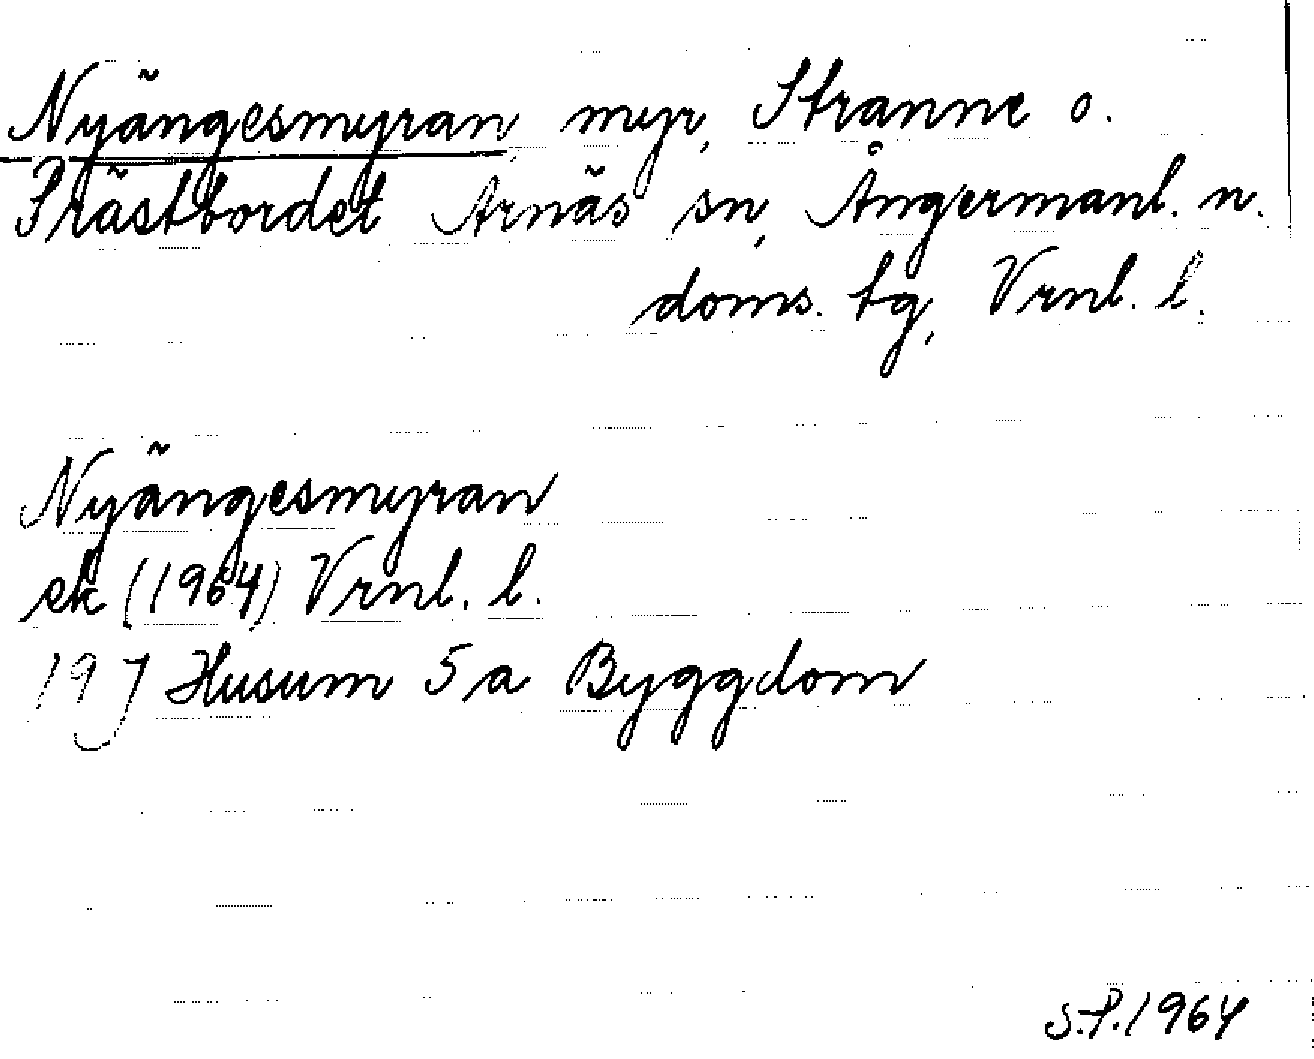 Nyängesmyran, myr, Stranne o.
Prästbordet Arnäs sn, Ångermanl. n.
doms. tg, Vrnl. l.
Nyängesmyran
ek (1964) Vrnl. l.
19 J Husum 5 a Byggdom
S.P. 1964